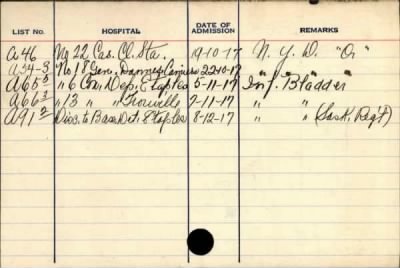 LIST NO. HOSPITAL DATE OF ADMISSION REMARKS
A46 No 22 Cas. Cl. Sta. 19-10-17 N. Y. D. "O"
A54-3 No 18 Gen. Dannes Camiers 22-10-17
A65 3 " 6 Con. Dep. Etaples 5-11-17 Inf. Bladder
A66 3 " 13 " Trouville 7-11-17 " "
A91 2 Disc. to Base Det. Etaples 8-12-17 " " (Sask. Reg't)